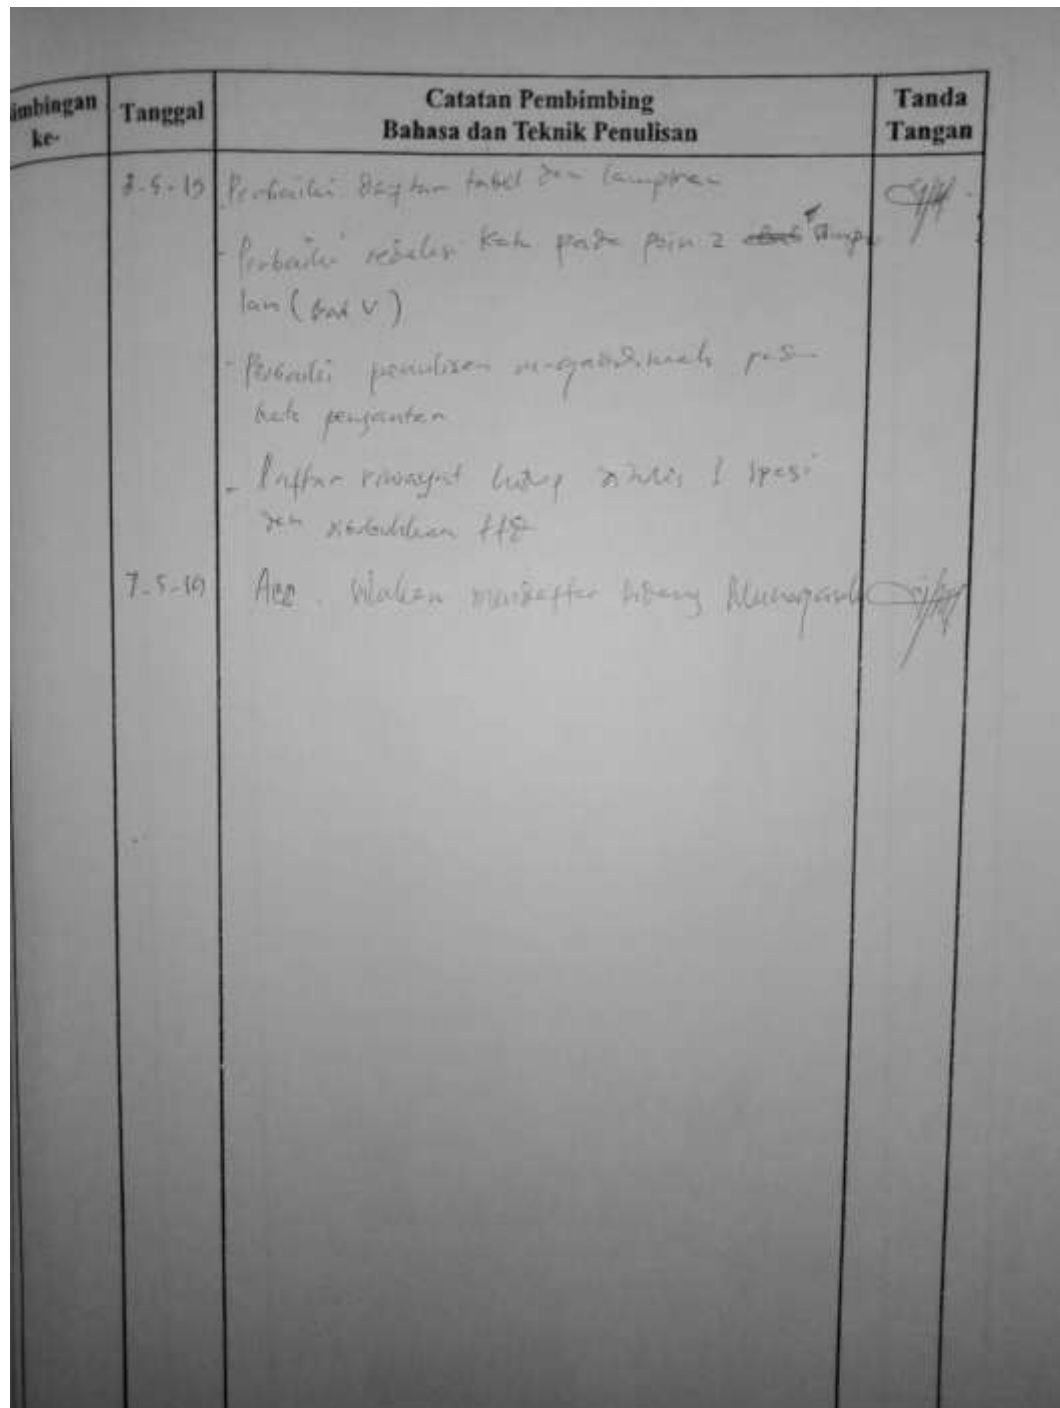 imbingan ke-
Tanggal
Catatan Pembimbing
Bahasa dan Teknik Penulisan
Tanda
Tangan
3-5-19
Perbaiki daftar tabel dan lampiran
- Perbaiki redaksi kata pada poin 2 Simpu
lan (Bab V)
- Perbaiki penulisan
kata pengantar
- Daftar riwayat hidup ditulis 1 spasi
dan ttd
7-5-19
Acc. silakan mendaftar sidang Munaqasah